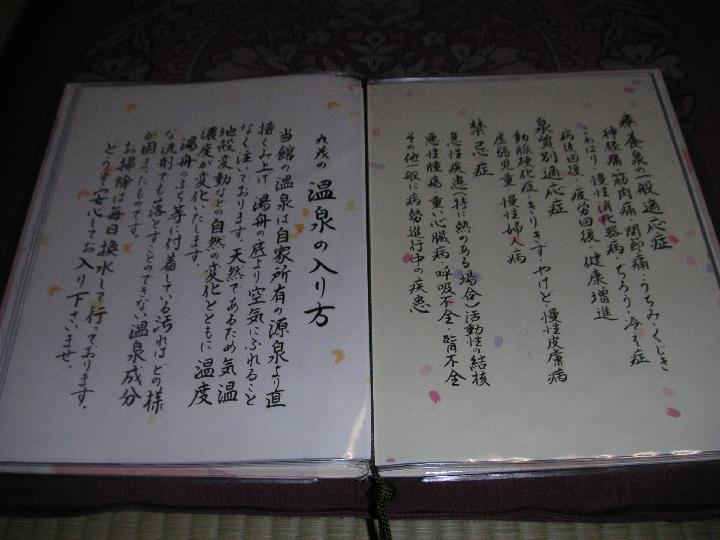 療養泉の一般適応症
神経痛・筋肉痛・関節痛・うちみ・くじき
こわばり・慢性消化器病・ぢろう・冷え症
病後回復・疲労回復・健康増進
泉質別適応症
動脈硬化症・きりきず・やけど・慢性皮膚病
虚弱児童・慢性婦人病
禁忌症
急性疾患(特に熱のある場合)活動性の結核
悪性腫瘍・重い心臓病・呼吸不全・腎不全
その他一般に病勢進行中の疾患
九茂の 温泉の入り方
当館の温泉は自家所有の源泉より直
接くみ上げ、湯舟の底より空気にふれること
なく注いでおります。天然であるため気温
地殻変動などの自然の変化とともに温度
濃度が変化いたします。
湯舟のふち等に付着している汚れはどの様
な洗剤でも落とすことのできない温泉成分
が固まったものです。
お掃除は毎日換水して行っております。
どうぞ安心してお入り下さいませ。